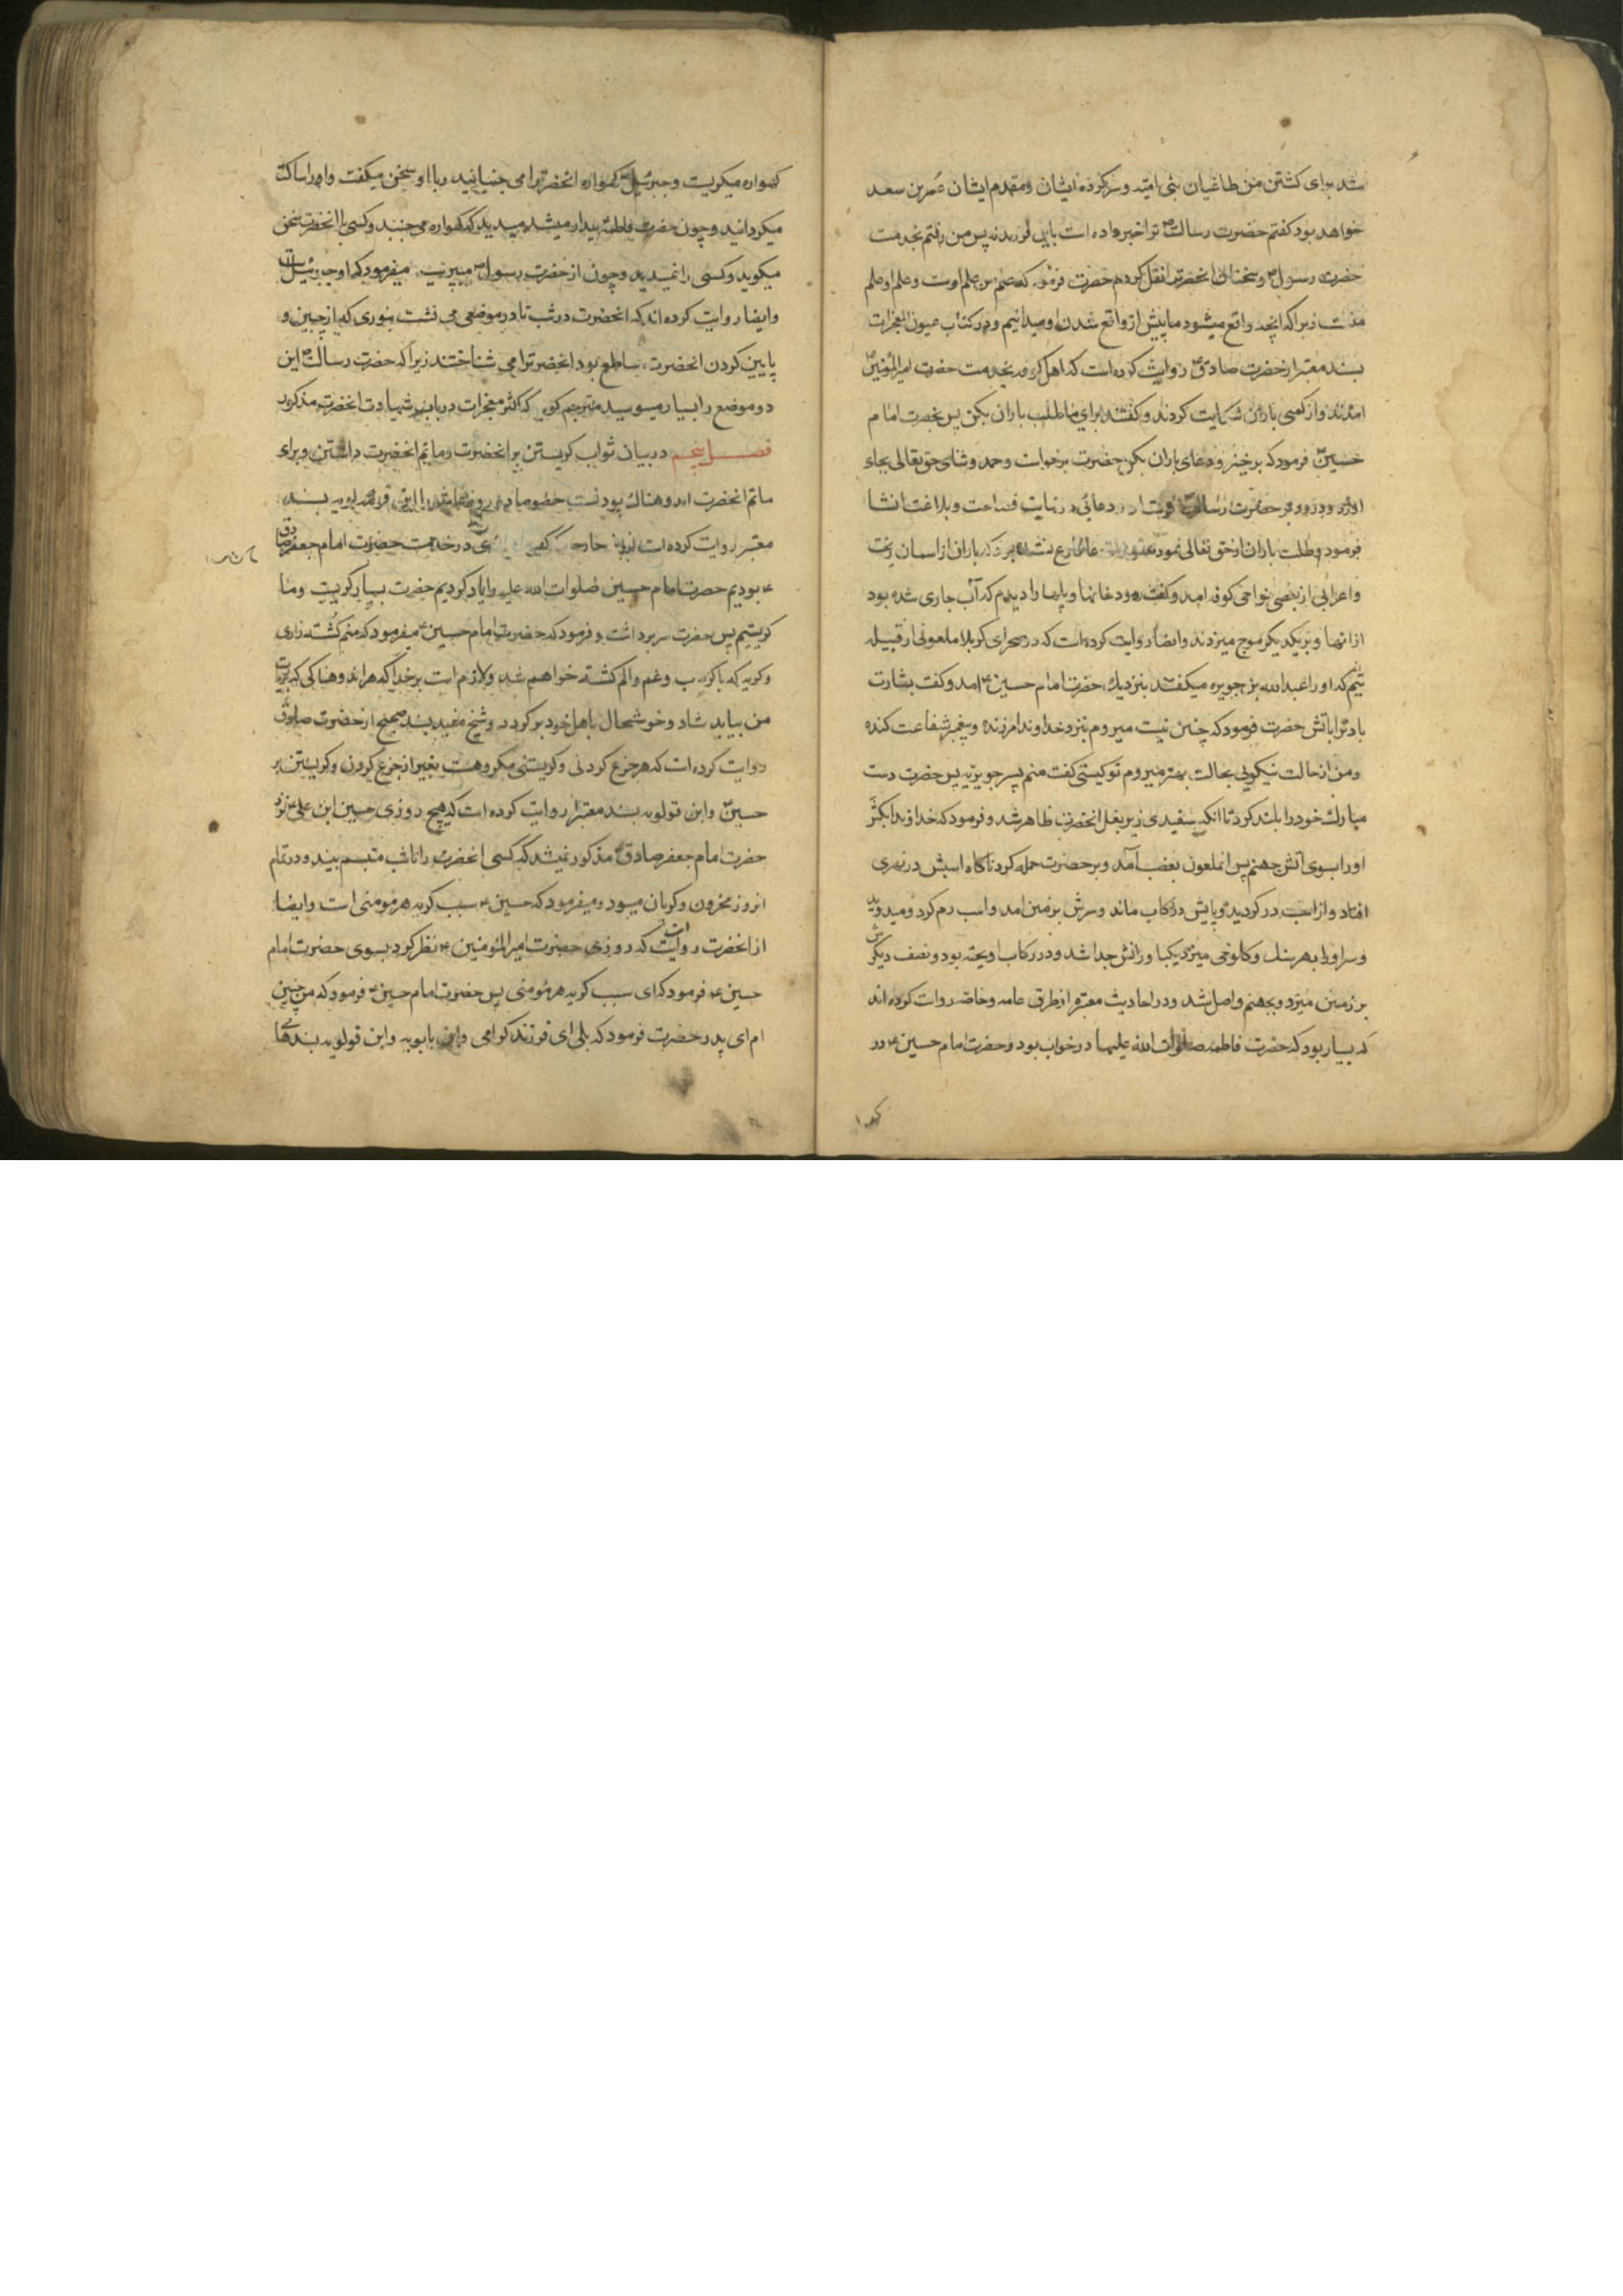 شد برای کشتن من طاغیان بنی امیه و سرکرده ایشان و مقدم ایشان عمر بن سعد
خواهد بود کفتم حضرت رسالت ص ترا خبر داده است باین فرمود نه پس من رفتم بخدمت
حضرت رسول ص و سخنان انحضرترا نقل کردم حضرت فرمود که علم من علم اوست و علم او علم
منست زیرا که انچه واقع میشود ما پیش از واقع شدن او میدانیم و در کتاب عیون المعجزات
بسند معتبر از حضرت صادق ع روایت کرده است که اهل کوفه بخدمت حضرت امیر المؤمنین ع
امدند و از کمی باران شکایت کردند و کفتند برای ما طلب باران بکن پس بحضرت امام
حسین ع فرمود که برخیز و دعای باران بکن حضرت برخواست و حمد و ثنای حق تعالی بجای
اورد و درود بر حضرت رسالت فرستاد و دعائی در نهایت فصاحت و بلاغت انشا
فرمود و طلب باران از حق تعالی نمود هنوز فارغ نشده بود که باران از اسمان ریخت
و اعرابی از بعضی نواحی کوفه امد و کفت رودخانها و یلها را دیدم که آب جاری شده بود
ازانها و بر یکدیکر موج میزدند و ایضا روایت کرده است که در صحرای کربلا ملعونی از قبیله
تیم که او را عبد الله بن جویره میکفتند بنزدیک حضرت امام حسین ع امد و کفت بشارت
باد ترا باتش حضرت فرمود که چنین نیست میروم بنزد خداوند امرزنده و پیغمبر شفاعت کننده
و من از حالت نیکویی بحالت بهتر میروم تو کیستی کفت منم پسر جویزیه پس حضرت دست
مبارک خود را بلند کرد تا انکه سفیدی زیر بغل انحضرت ظاهر شد و فرمود که خداوندا بکش
او را بسوی آتش جهنم پس انملعون بغضب آمد و بر حضرت حمله کرد ناکاه اسبش در نهری
افتاد و از اسب در کردید و پایش در رکاب ماند و سرش بر زمین امد و اسب رم کرد و میدوید
و سر او را بهر سنک و کلوخی میزد یکپا و رانش جدا شد و در رکاب اویخته بود و نصف دیکرش
بر زمین میزد و بجهنم واصل شد و در احادیث معتبره از طرق عامه و خاصه روایت کرده اند
که بسیار بود که حضرت فاطمه صلوات الله علیها در خواب بود و حضرت امام حسین ع در
کهواره میکریست و جبرئیل ع کهواره انحضرترا می جنبانید و با او سخن میکفت و او را ساکت
میکردانید و چون حضرت فاطمه بیدار میشد میدید که کهواره می جنبد و کسی با انحضرت سخن
میکوید و کسی را نمیدید و چون از حضرت رسول ص میپرسید میفرمود که او جبرئیل است
و ایضا روایت کرده اند که انحضرت در شب تا در موضعی می نشست بنوری که از جبین و
پایین کردن انحضرت ساطع بود انحضرترا می شناختند زیرا که حضرت رسالت ص این
دو موضع را بسیار میبوسید مترجم کوید که اکثر معجزات در باب شهادت انحضرت مذکور
فصل پنجم در بیان ثواب کریستن بر انحضرت و ماتم انحضرت داشتن و برای
ماتم انحضرت اندوهناک بودنست خصوصا در روز عاشورا ابن قولویه بسند
معتبر روایت کرده است در خدمت حضرت امام جعفر صادق
ع بودیم حضرت امام حسین صلوات الله علیه را یاد کردیم حضرت بسیار کریست و ما
کریستیم پس حضرت سر برداشت و فرمود که حضرت امام حسین ع میفرمود که منم کشته زاری
و کریه که با کرب و غم و الم کشته خواهم شد و لازم است بر خدا که هر اندوهناکی که بزیارت
من بیاید شاد و خوشحال باهل خود برکردد و شیخ مفید بسند صحیح از حضرت صادق ع
روایت کرده است که هر جزع کردنی و کریستنی مکروهست بغیر از جزع کردن و کریستن بر
حسین ع و ابن قولویه بسند معتبر روایت کرده است که هیچ روزی حسین ابن علی ع نزد
حضرت امام جعفر صادق ع مذکور نمیشد که کسی انحضرت را تا شب متبسم بیند و در تمام
انروز محزون و کریان میبود و میفرمود که حسین ع سبب کریه هر مومنی است و ایضا
از انحضرت روایت است که روزی حضرت امیر المؤمنین ع نظر کرد بسوی حضرت امام
حسین ع فرمود که ای سبب کریه هر مؤمنی پس حضرت امام حسین ع فرمود که من چنین
ام ای پدر حضرت فرمود که بلی ای فرزند کرامی و ابن بابویه و ابن قولویه بسندهای